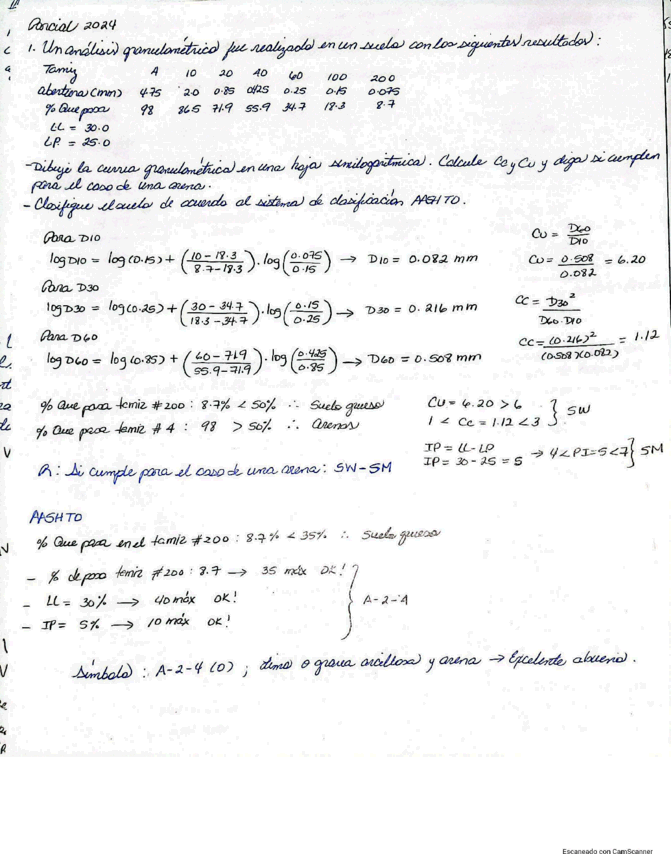 Parcial 2024
1. Un análisis granulométrico fue realizado en un suelo con los siguientes resultados:
Tamiz 4 10 20 40 60 100 200
abertura (mm) 4.75 2.0 0.85 0.425 0.25 0.15 0.075
% Que pasa 98 86.5 71.9 55.9 34.7 18.3 8.7
LL = 30.0
LP = 25.0
- Dibuje la curva granulométrica en una hoja semilogarítmica. Calcule Cc y Cu y diga si cumplen
para el caso de una arena.
- Clasifique el suelo de acuerdo al sistema de clasificación AASHTO.
Para D10
log D10 = log (0.15) + (10 - 18.3 / 8.7 - 18.3) . log (0.075 / 0.15) → D10 = 0.082 mm
Para D30
log D30 = log (0.25) + (30 - 34.7 / 18.3 - 34.7) . log (0.15 / 0.25) → D30 = 0.216 mm
Para D60
log D60 = log (0.85) + (60 - 71.9 / 55.9 - 71.9) . log (0.425 / 0.85) → D60 = 0.508 mm
Cu = D60 / D10
Cu = 0.508 / 0.082 = 6.20
CC = D30² / D60 . D10
CC = (0.216)² / (0.508)(0.082) = 1.12
% Que pasa tamiz #200 : 8.7% < 50% ∴ Suelo grueso
% Que pasa tamiz # 4 : 98 > 50% ∴ arenas
CU = 6.20 > 6
1 < Cc = 1.12 < 3 } SW
IP = LL - LP
IP = 30 - 25 = 5 → 4 < PI = 5 < 7 } SM
R: Si cumple para el caso de una arena: SW-SM
AASHTO
% Que pasa en el tamiz #200 : 8.7% < 35% ∴ Suelo grueso
- % de paso tamiz #200 : 8.7 → 35 máx OK!
- LL = 30% → 40 máx OK!
- IP = 5% → 10 máx OK!
} A-2-4
Símbolo : A-2-4 (0) ; limo o grava arcillosa y arena → Excelente a bueno.
Escaneado con CamScanner